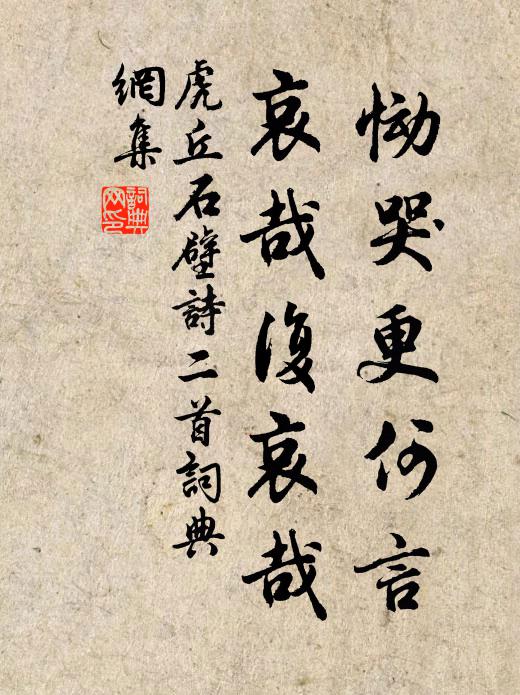 恸哭更何言
哀哉復哀哉
虎丘石壁詩二首詞典
網集
詞典網印